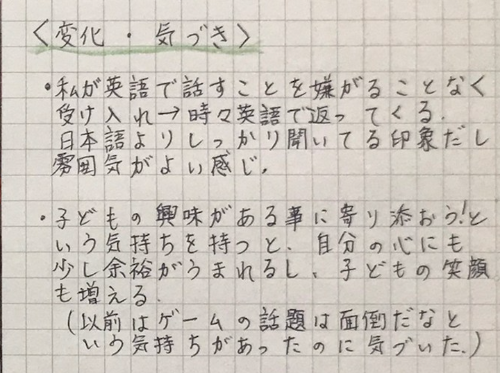 〈変化・気づき〉
・私が英語で話すことを嫌がることなく
受け入れ→時々英語で返ってくる.
日本語よりしっかり聞いてる印象だし
雰囲気がよい感じ.
・子どもの興味がある事に寄り添おう!と
いう気持ちを持つと、自分の心にも
少し余裕がうまれるし、子どもの笑顔
も増える.
(以前はゲームの話題は面倒だなと
いう気持ちがあったのに気づいた.)